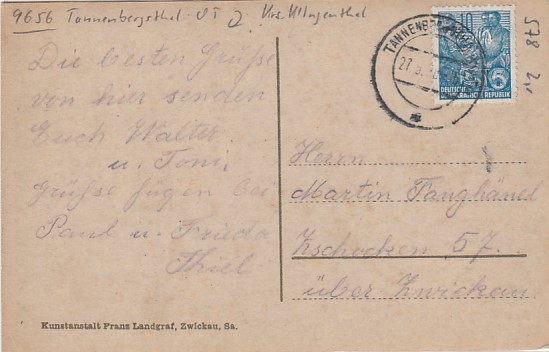 9656 Tannenbergsthal - OT 2 Krs. Klingenthal
578 2,
TANNENBERGSTHAL
27.5.
10
DEUTSCHE
DEMOKRATISCHE REPUBLIK
Die besten Grüße
von hier senden
Euch Walter
u. Toni,
Grüße fügen bei
Paul u. Frieda
Thiel
Herrn
Martin Fanghänel
Zschocken 57.
über Zwickau
Kunstanstalt Franz Landgraf, Zwickau, Sa.